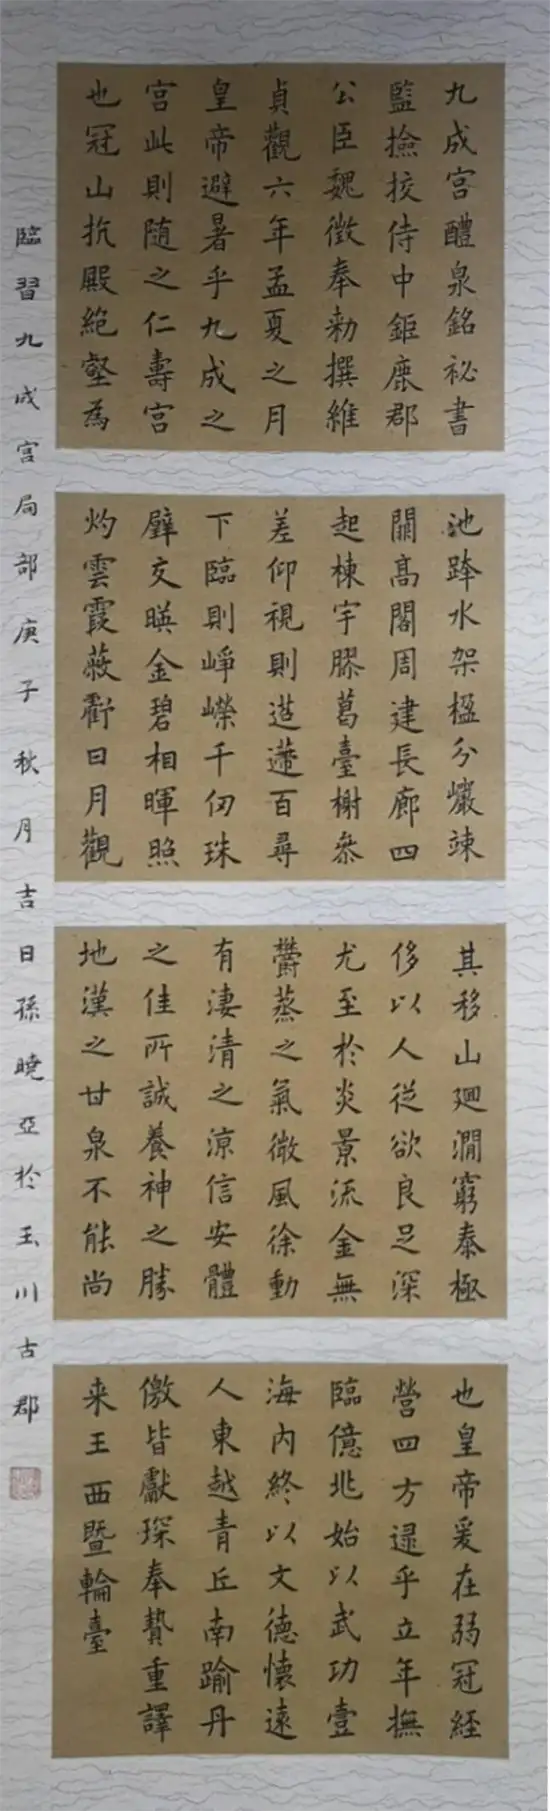 九成宮醴泉銘祕書
監撿挍侍中鉅鹿郡
公臣魏徵奉勑撰維
貞觀六年孟夏之月
皇帝避暑乎九成之
宮此則随之仁壽宮
也冠山抗殿絶壑為
池跨水架楹分巖竦
闕高閣周建長廊四
起棟宇膠葛臺榭參
差仰視則迢遰百尋
下臨則崢嶸千仞珠
壁交暎金碧相暉照
灼雲霞蔽虧日月觀
其移山廻澗窮泰極
侈以人從欲良足深
尤至於炎景流金無
鬱蒸之氣微風徐動
有淒清之涼信安體
之佳所誠養神之勝
地漢之甘泉不能尚
也皇帝爰在弱冠經
營四方逯乎立年撫
臨億兆始以武功壹
海内終以文德懷遠
人東越青丘南踰丹
儌皆獻琛奉贄重譯
来王西曁輪臺
臨習九成宮局部庚子秋月吉日孫曉亞於玉川古郡